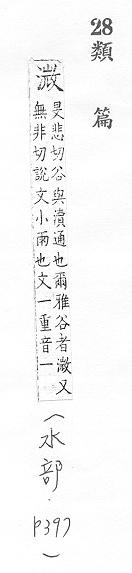 28
類篇
溦
旻悲切谷與瀆通也爾雅谷者溦又
無非切說文小雨也文一重音一
(水部.p397)